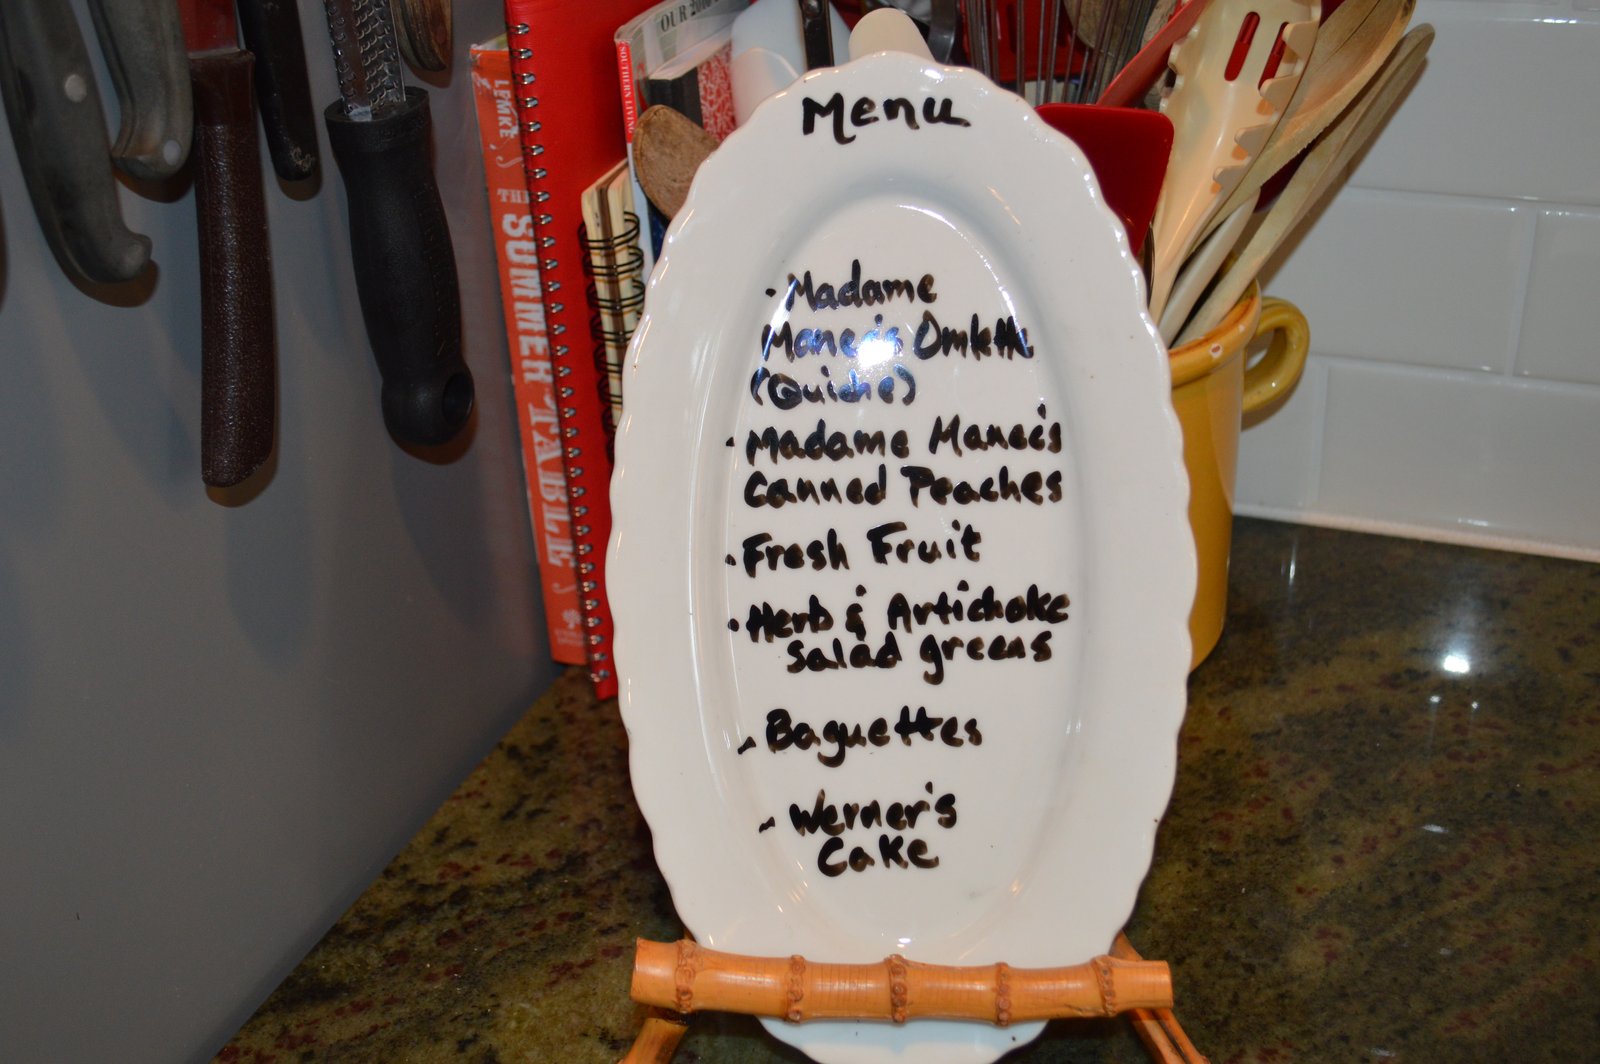 LEMKE
THE
SUMMER TABLE
SOUTHERN LIVING
OUR
Menu
· Madame
Manec's Omlette
(Quiche)
· Madame Manec's
Canned Peaches
· Fresh Fruit
· Herb & Artichoke
salad greens
- Baguettes
- Werner's
Cake